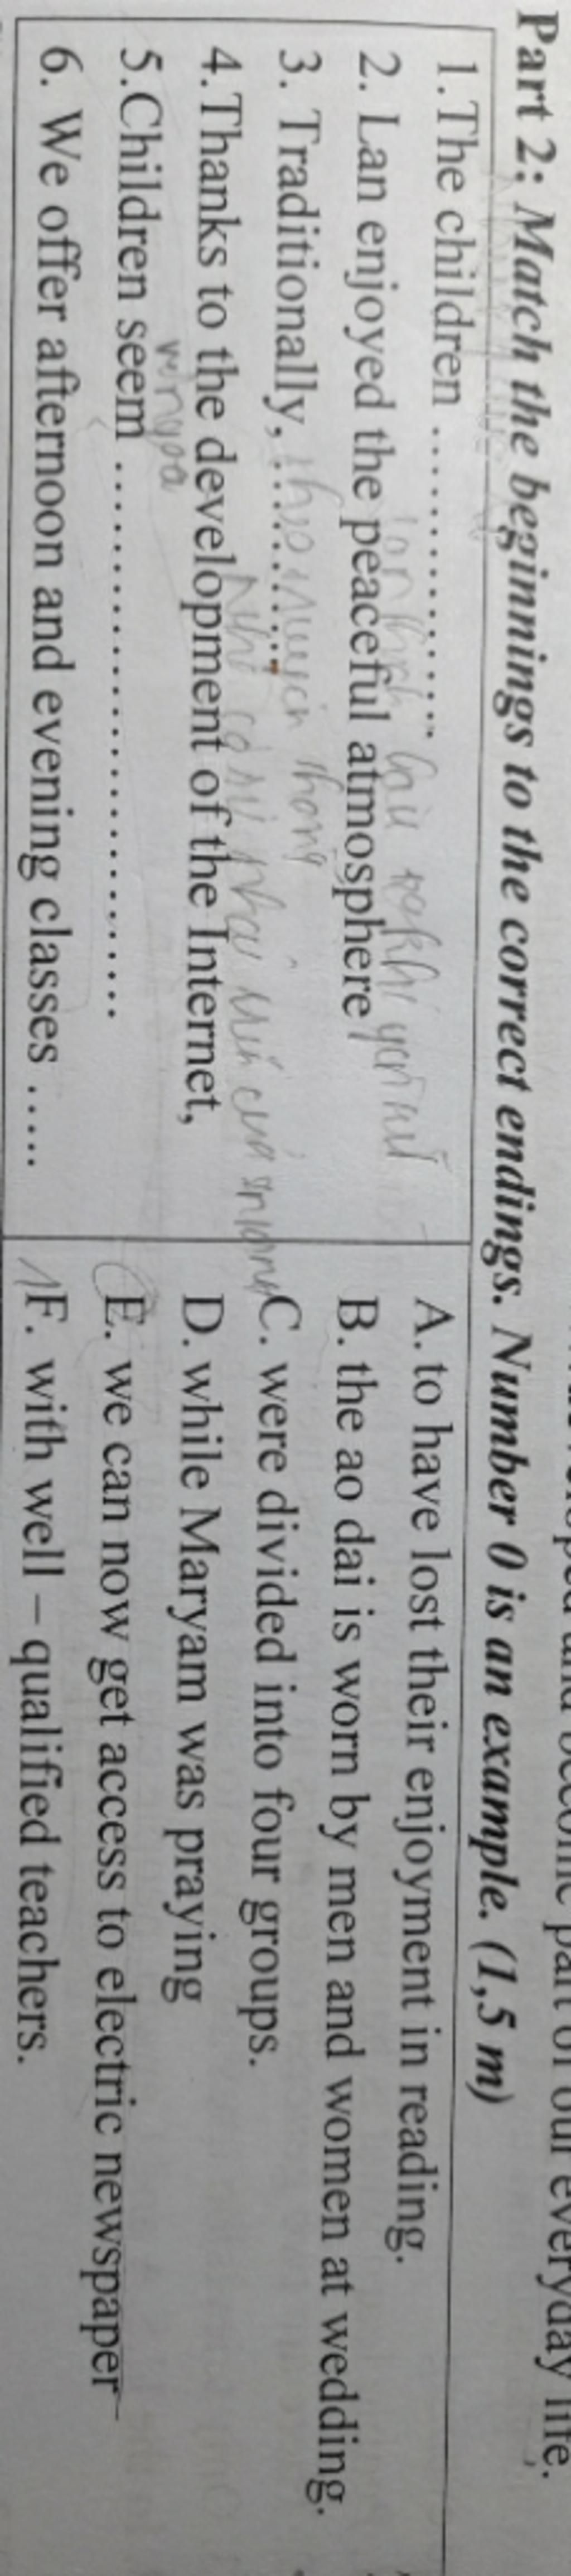 become part of our everyday life.
Part 2: Match the beginnings to the correct endings. Number 0 is an example. (1,5 m)
1.The children ...............
2. Lan enjoyed the peaceful atmosphere
3. Traditionally, ...........
4.Thanks to the development of the Internet,
5.Children seem ..............................
6. We offer afternoon and evening classes .....
A. to have lost their enjoyment in reading.
B. the ao dai is worn by men and women at wedding.
C. were divided into four groups.
D. while Maryam was praying
E. we can now get access to electric newspaper
F. with well – qualified teachers.